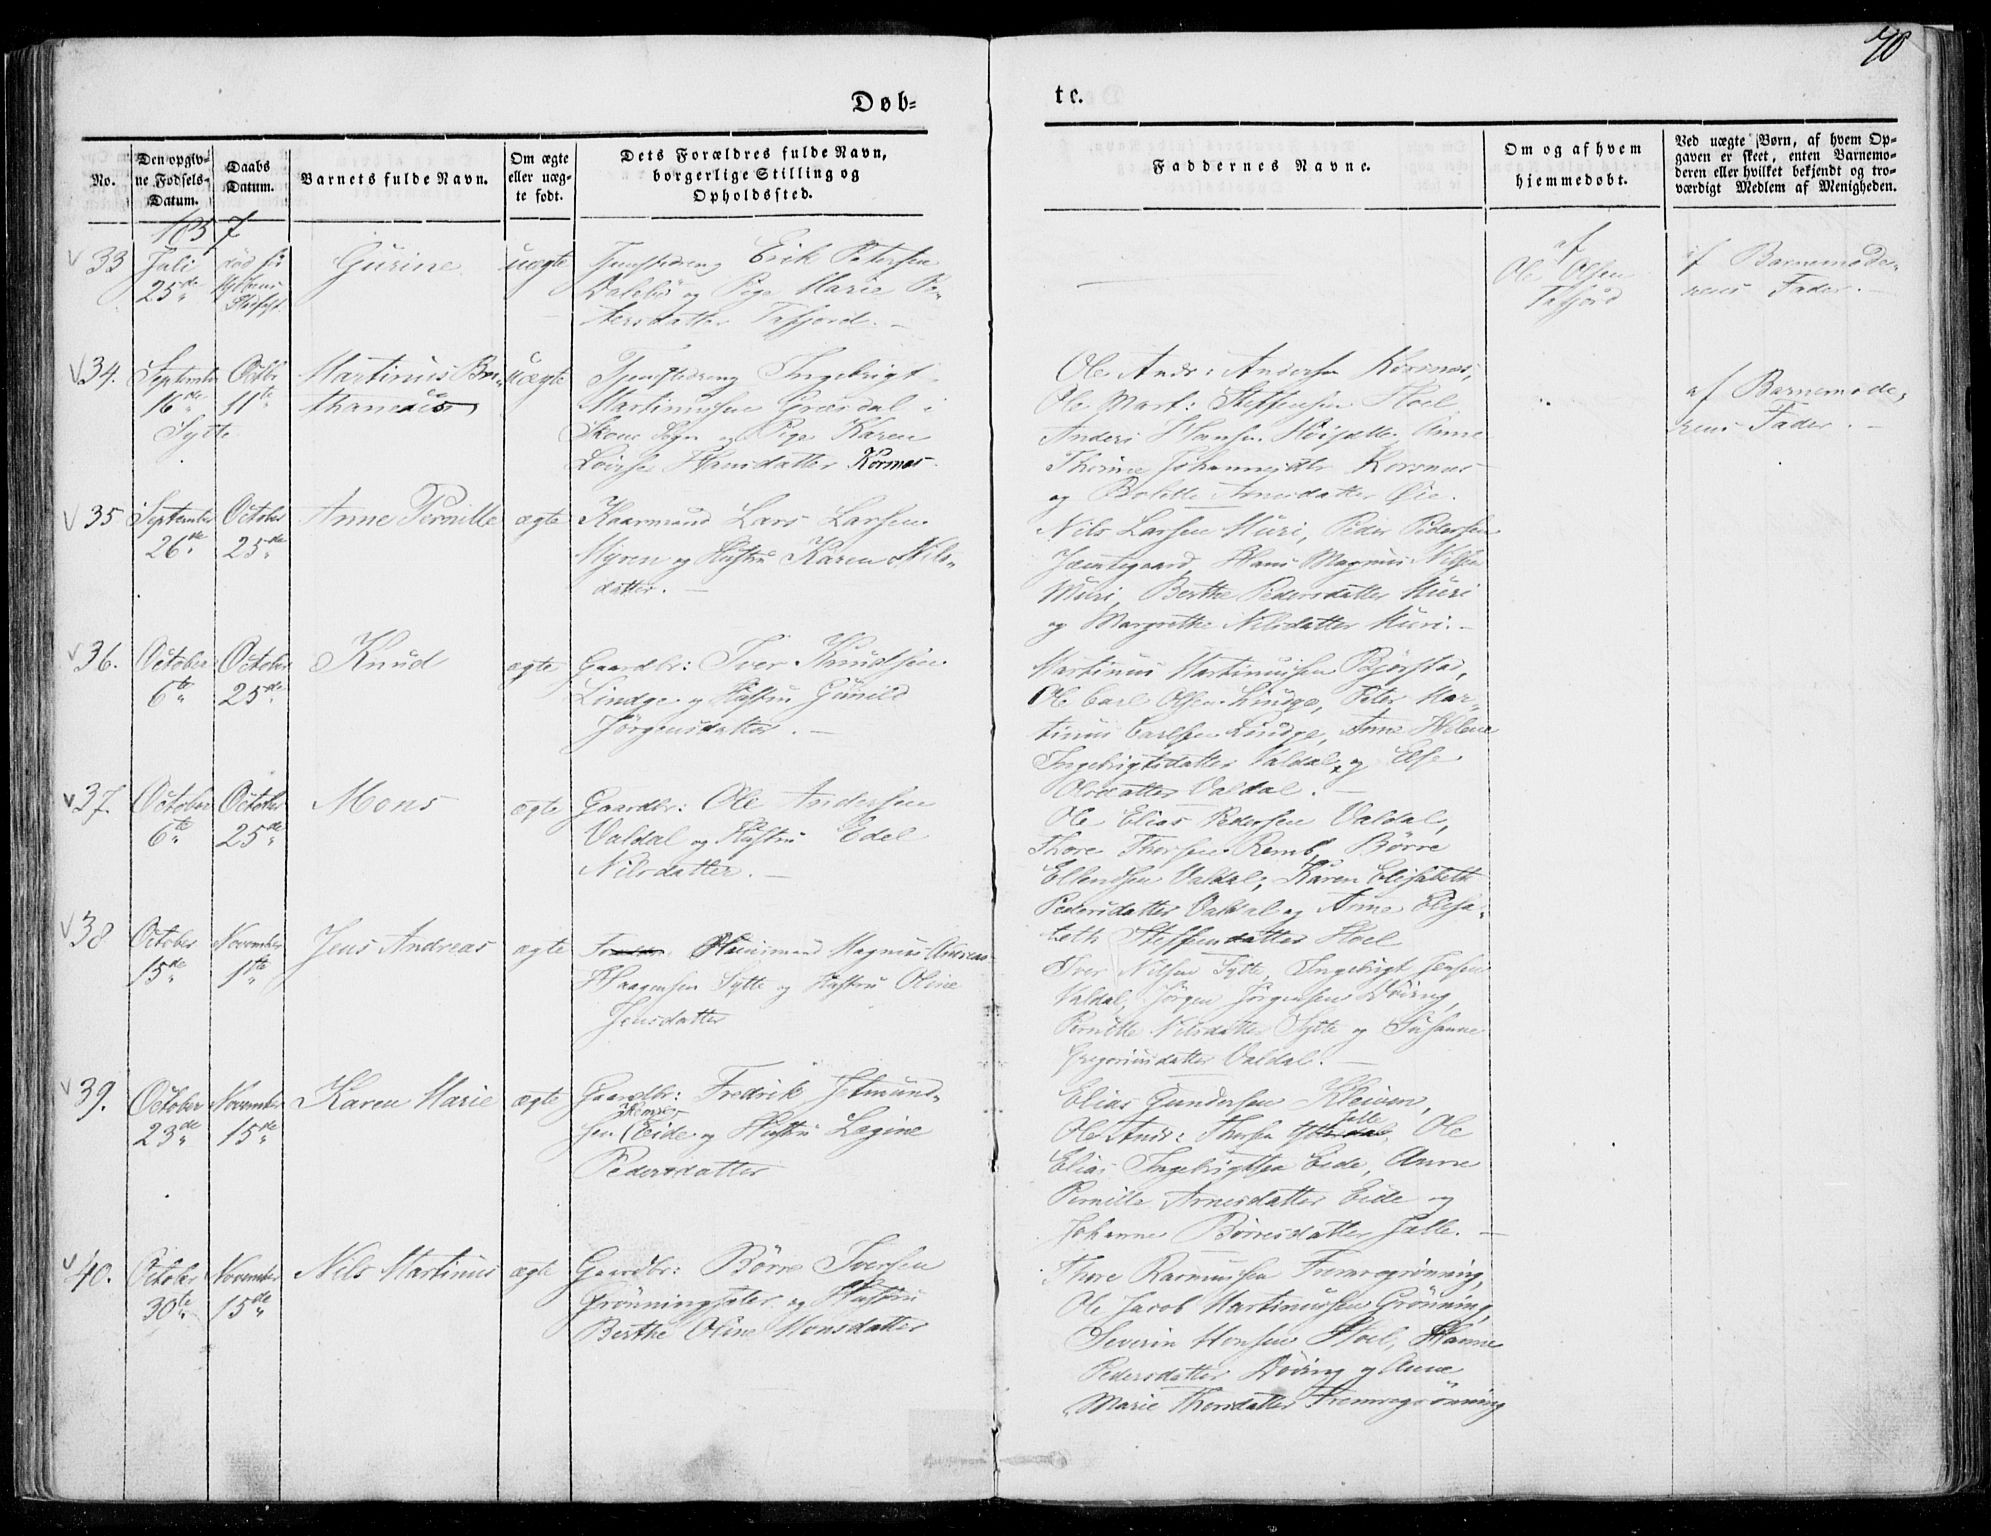 70
Døb=
te.
No.
Den opgiv-
ne Fødsels-
Datum.
Daabs
Datum.
Barnets fulde Navn.
Om ægte
eller uæg-
te født.
Dets Forældres fulde Navn,
borgerlige Stilling og
Opholdssted.
Faddernes Navne.
Om og af hvem
hjemmedøbt.
Ved uægte Børn, af hvem Op-
gaven er skeet, enten Barnemo-
deren eller hvilket bekjendt og tro-
værdigt Medlem af Menigheden.
1857
33
Juli
25de
død før
Gurine
uægte
Tjenstedreng Erik Petersen
Dalebø og Pige Marie Pe-
tersdatter Tafjord. -
af
Ole Olsen
Tafjord
af Barnemode-
rens Fader. -
34.
September
16de
Sytte
Octbr
11te
Martinus Ber-
uægte
Tjenstedreng Ingebrigt
Martinussen Græsdal i
Sogn og Pige Karen
Lovise Hansdatter Korsnæs
Ole Andr: Andersen Korsnæs,
Ole Mart: Steffensen Hoel
Anders Hansen Anne
Thorine Johannesdtr Korsnæs
og Bolette Arnesdatter Øie.
af Barnemode,
rens Fader. -
35
September
26de
October
25de
Anne Pernille
ægte
Kaarmand Lars Larsen
Myren og Hustru Karen Nils-
datter. -
Nils Larsen Muri, Peder Pedersen
Jemtegaard, Hans Magnus Nilsen
Muri, Berthe Pedersdatter Muri
og Margrethe Nilsdatter Muri. -
36.
October
6te
October
25de
Knud
ægte
Gaardbr: Iver Knudsen
Lindge og Hustru Gunild
Jørgensdatter. -
Martinus Martinussen Bjørstad,
Ole Carl Olsen Lindge, Peter Mar-
tinus Carlsen Lindge, Anne Helene
Ingebrigtsdatter Valdal, og Else
Olsdatter Valdal. -
37.
October
6te
October
25de
Mons
ægte
Gaardbr: Ole Andersen
Valdal og Hustru Edel
Nilsdatter. -
Ole Elias Pedersen Valdal,
Thore Thorsen Remb, Børre
Ellendsen Valdal, Karen Elisabeth
Pedersdatter Valdal og Anne Elisa-
beth Steffensdatter Hoel
38
October
15de
November
1te
Jens Andreas
ægte
Huusmand Magnus Andreas
Haagensen Sytte og Hustru Oline
Jensdatter
Iver Nilsen Sytte, Ingebrigt Jensen
Valdal, Jørgen Jørgensen Døving,
Pernille Nilsdatter Sytte og Susanne
Gregoriusdatter Valdal. -
39.
October
23de
November
15de
Karen Marie
ægte
Gaardbr: Fredrik Jetmund-
sen Eide og Hustru Lagine
Pedersdatter
Elias Gundersen Kleiven,
Ole Andr: Thorsen Jalle, Ole
Elias Ingebrigtsen Eide, Anne
Pernille Arnesdatter Eide og
Johanne Børresdatter Jalle. -
40.
October
30te
November
15de
Nils Martinus
ægte
Gaardbr: Børre Iversen
Grønningsæter og Hustru
Berthe Oline Monsdatter
Thore Rasmussen Fremregrønning,
Ole Jacob Martinussen Grønning,
Severin Monsen Hoel, Hanne
Pedersdatter Døving og Anne
Marie Thorsdatter Fremregrønning